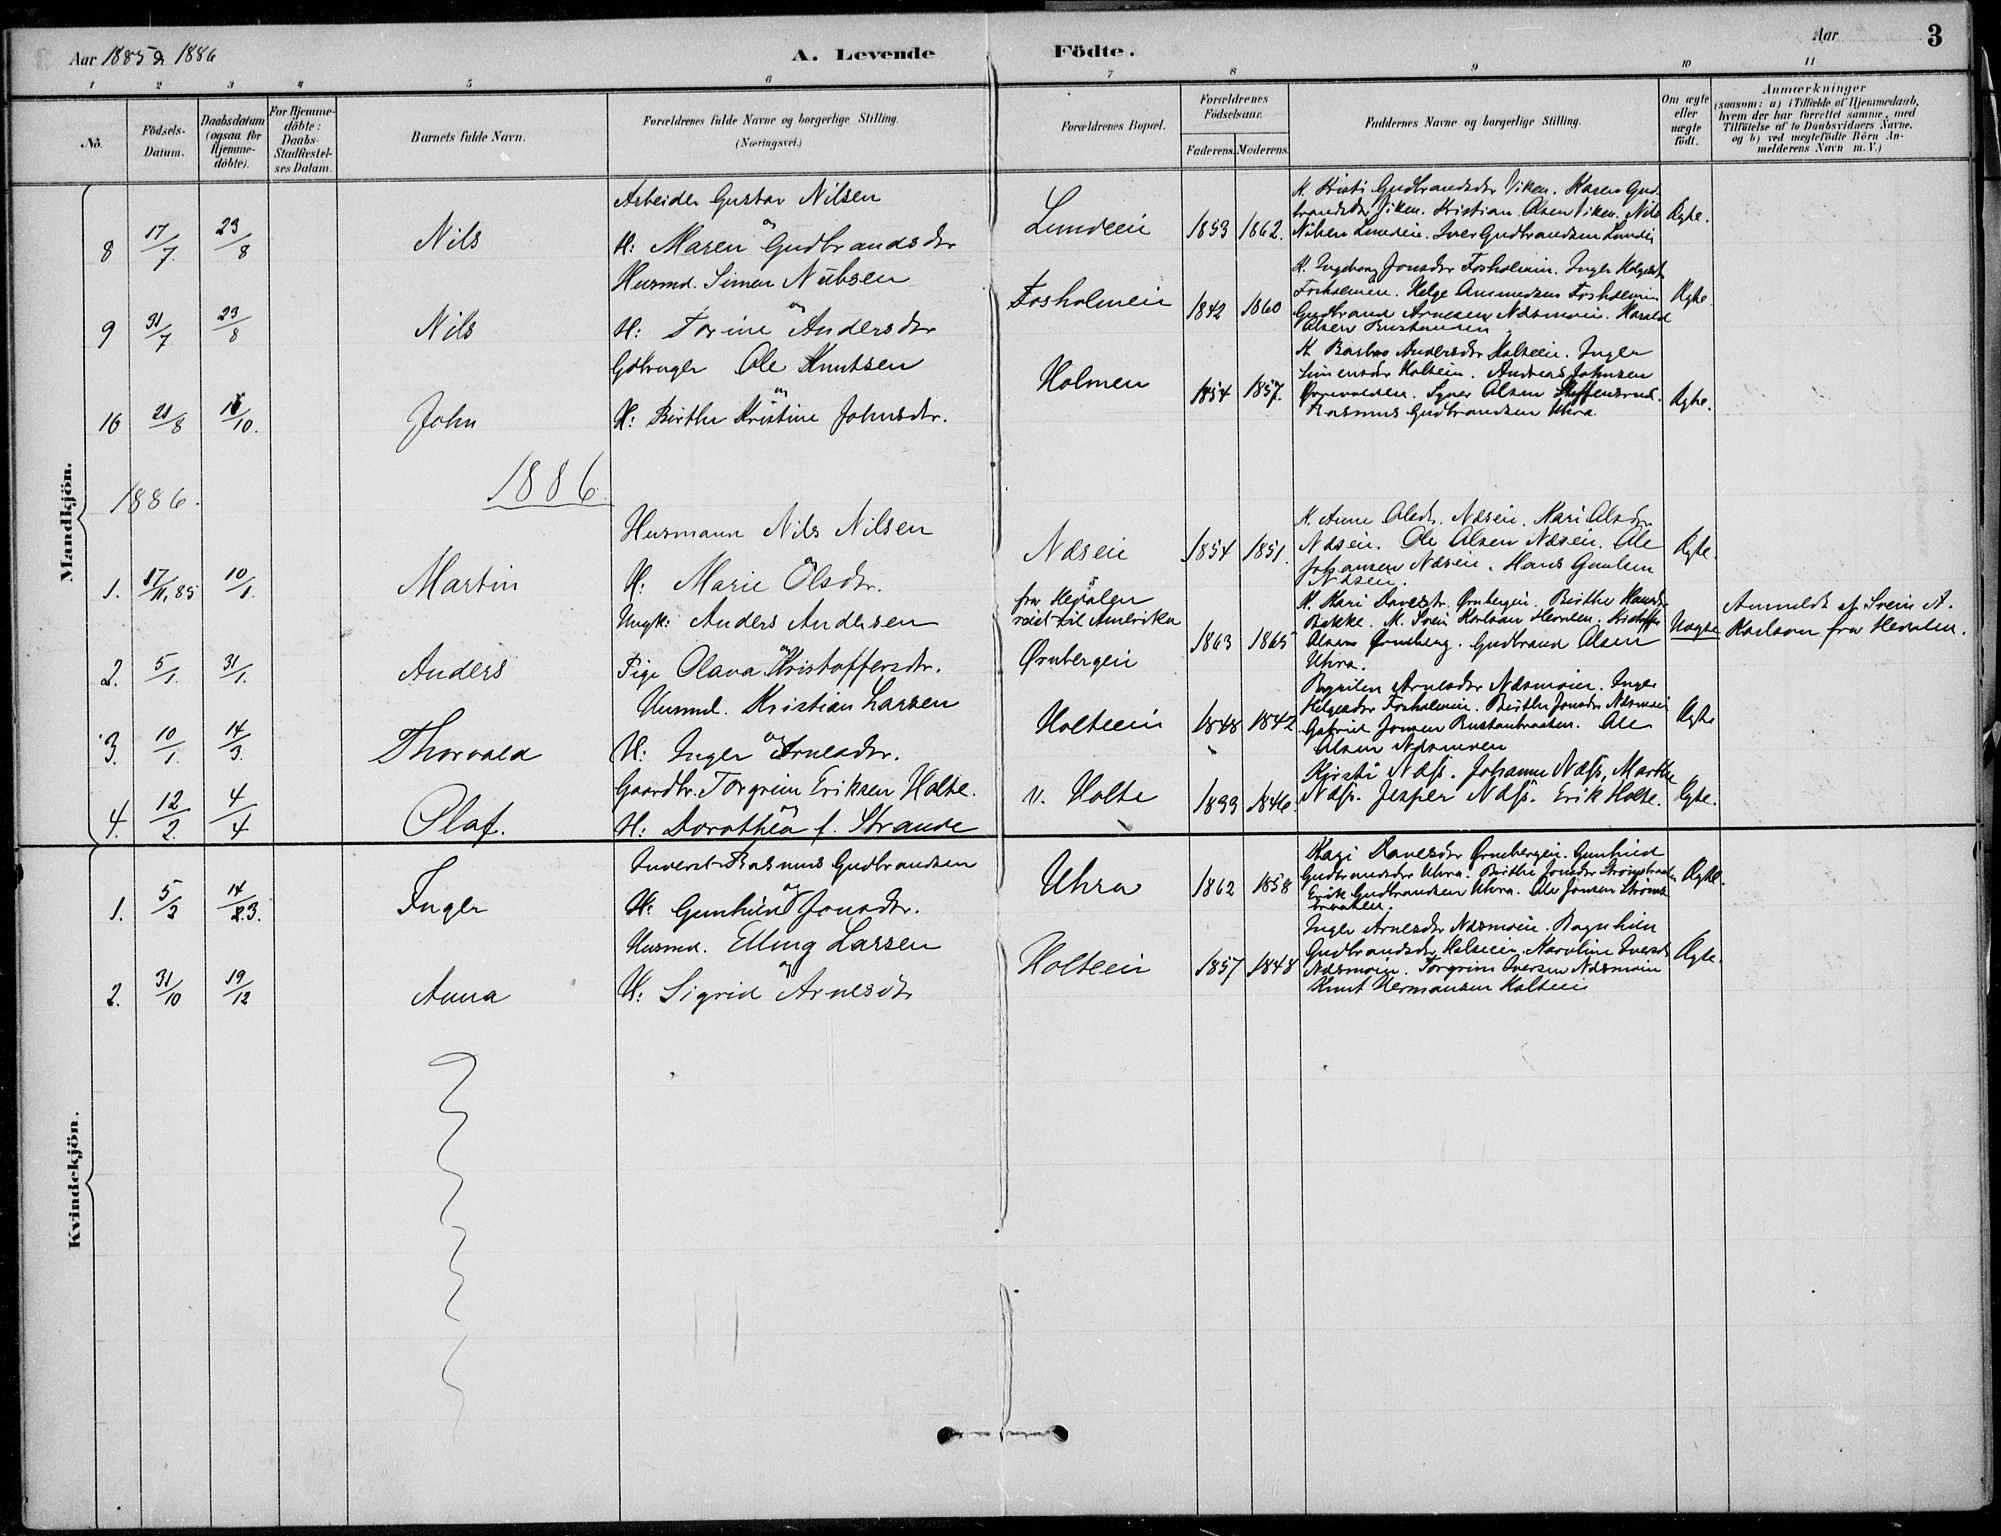 Aar 1885 & 1886
A. Levende Födte.
Aar
3
1 2 3 4 5 6 7 8 9 10 11
No.
Födsels-Datum.
Daabsdatum (ogsaa for Hjemme-döbte).
For Hjemme-döbte: Daabs-Stadfæstel-ses Datum.
Barnets fulde Navn.
Forældrenes fulde Navne og borgerlige Stilling.
(Næringsvei.)
Forældrenes Bopæl.
Forældrenes Födselsaar.
Faderens. Moderens.
Faddernes Navne og borgerlige Stilling.
Om ægte eller uægte födt.
Anmærkninger
(saasom: a) i Tilfælde af Hjemmedaab,
hvem der har forrettet samme, med
Tilföielse af to Daabsvidners Navne,
og b) ved uægtefödte Börn An-
melderens Navn m. V.)
Mandkjön.
8 17/7 23/8 Nils
Arbeider Gustav Nilsen
og
H: Maren Gudbrandsdtr
Lundeie 1853 1862.
K. Kirsti Gudbrandsdtr Viken. Karen Gud-
brandsdtr Viken. Kristian Olsen Viken. Nils
Nilsen Lundeie. Iver Gudbrandsen Lundei
Ægte.
9 31/7 23/8 Nils
Husmd. Simen Nubsen
og
H: Torine Andersdtr
Fosholmeie 1842 1860
K. Ingeborg Jonsdtr Fosholmein. Inger Helgesdtr
Fosholmein. Helge Ammudsen Fosholmein
Gudbrand Arnesen Næsmoin. Harald
Olsen
Ægte
10 21/8 18/10. John
Gdbruger Ole Knutsen
og
H: Birthe Kristine Johnsdtr.
Holmen 1854 1857.
K Barbro Andersdtr Holteeie. Inger
Simensdtr Holtein. Andreas Johnsen
Olsen Steffensrud.
Rasmus Gudbrandsen Uhra
Ægte.
1886. 1886.
1. 17/11,85 10/1. Martin
Husmann Nils Nilsen
og
H: Marie Olsdtr.
Næseie 1854 1851.
K. Anne Olsdtr. Næseie. Kari Olsdtr
Næseie. Ole Olsen Næseie. Ole
Johansen Næseie. Hans
Næseie.
Ægte.
2. 5/1. 31/1. Anders
Ungk: Anders Andersen
og
Pige Olava Kristoffersdtr.
fra Hedalen
reist til Amerika
Ørnbergeie
1863 1865
K. Kari Ørnbergeie. Birthe Hansdtr
Bakke. M. Svein Karlson Hevalen. Kristoffer
Olsen Ørnberg. Gudbrand Olsen
Uhra.
Uægte
Anmeldt af Svein A.
Karlson fra Hevalen.
3. 10/1. 14/3. Thorvald
Husmd. Kristian Larsen
og
H: Inger Arnesdtr.
Holteeie 1848 1842
Arnesdtr Næsmoien. Inger
Helgesdtr Fosholmein. Birthe Jonsdtr Næsmoie
Gabriel Jonsen Bustenbraaten. Ole
Olsen Næsmoen
Ægte
4. 12/2. 4/4 Olaf.
Gaardbr. Torgrim Eriksen Holte.
og
H: Dorothea f. Strande
v. Holte 1833 1846.
Kirsti Næss. Johanne Næss, Marthe
Næss. Jesper Næss. Erik Holte.
Ægte.
Kvindekjön.
1. 5/3 14/3. Inger
Inderst Rasmus Gudbrandsen
og
H: Gunhild Jonsdtr.
Uhra 1862 1858
Kari Ørnbergeie. Gunhild
Gudbrandsdtr Uhra. Birthe Jonsdtr Strömsbraaten
Erik Gudbrandsen Uhra. Ole Jonsen Ströms-
braaten.
Ægte.
2. 31/10 19/12 Anna
Husmd. Elling Larsen
og
H: Sigrid Arnesdtr
Holteeie 1857 1848
Inger Arnesdtr Næsmoie. Ragnhild
Gudbrandsdtr Holteeie. Karoline Iversdtr
Næsmoien. Torgrim Iversen Næsmoien
Knut Hermansen Holteeie
Ægte.